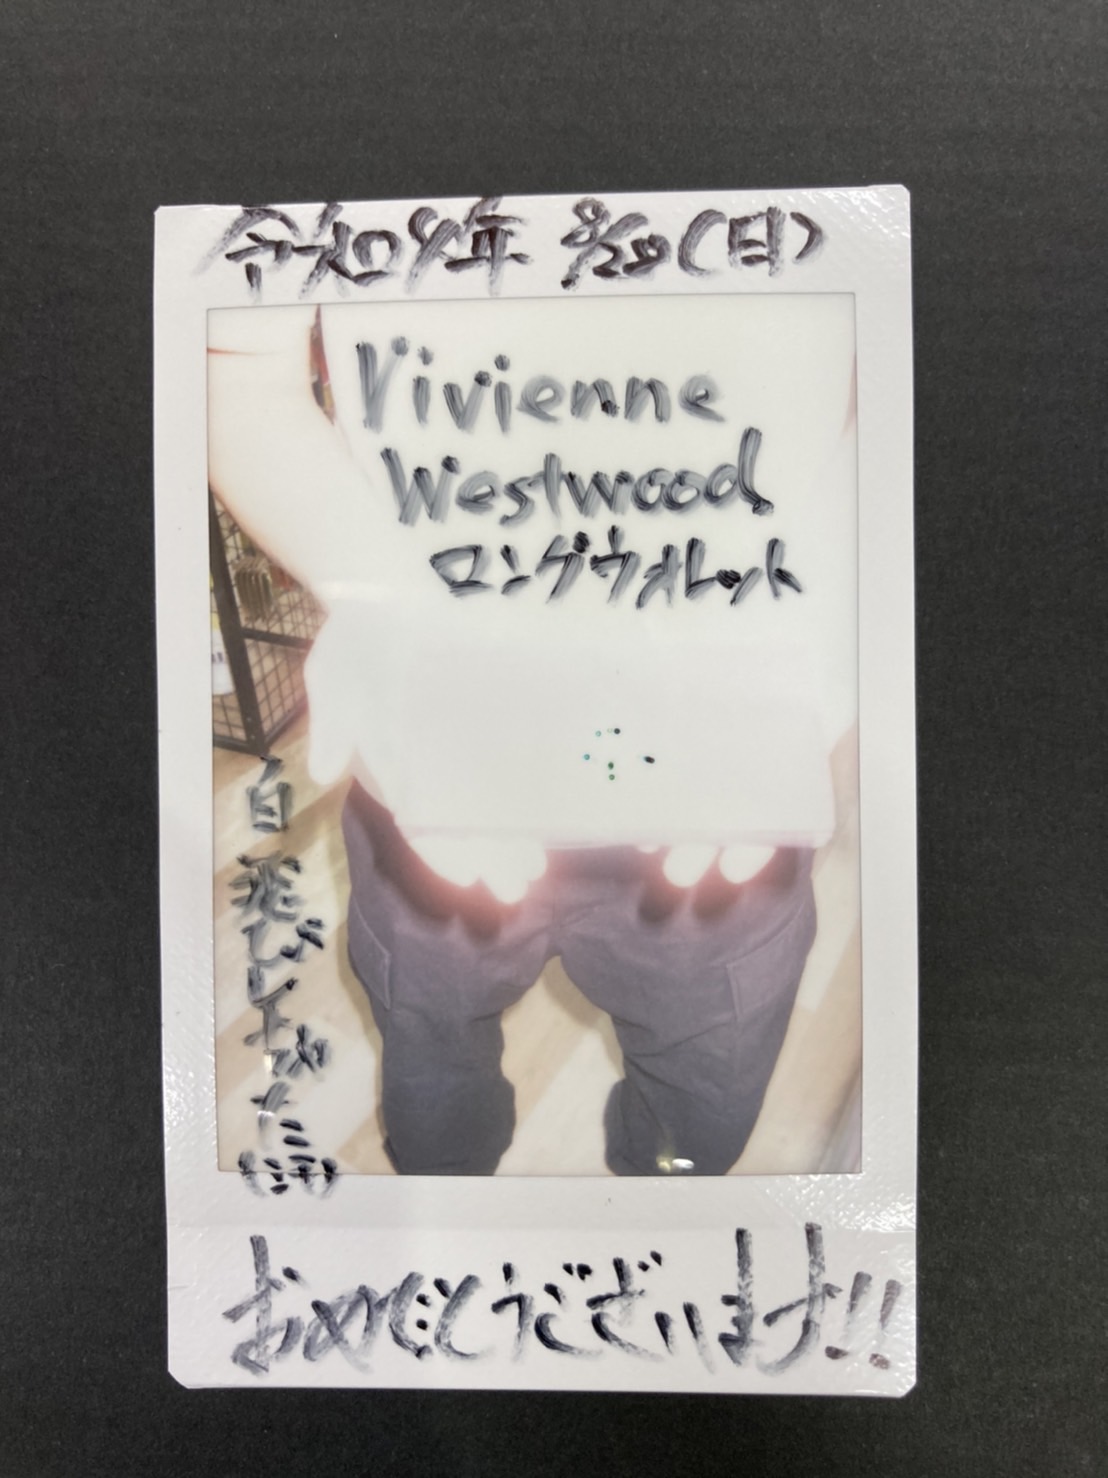 令和4年 8/28(日)
Vivienne
Westwood
ロングウォレット
白飛びし
おめでとうございます!!